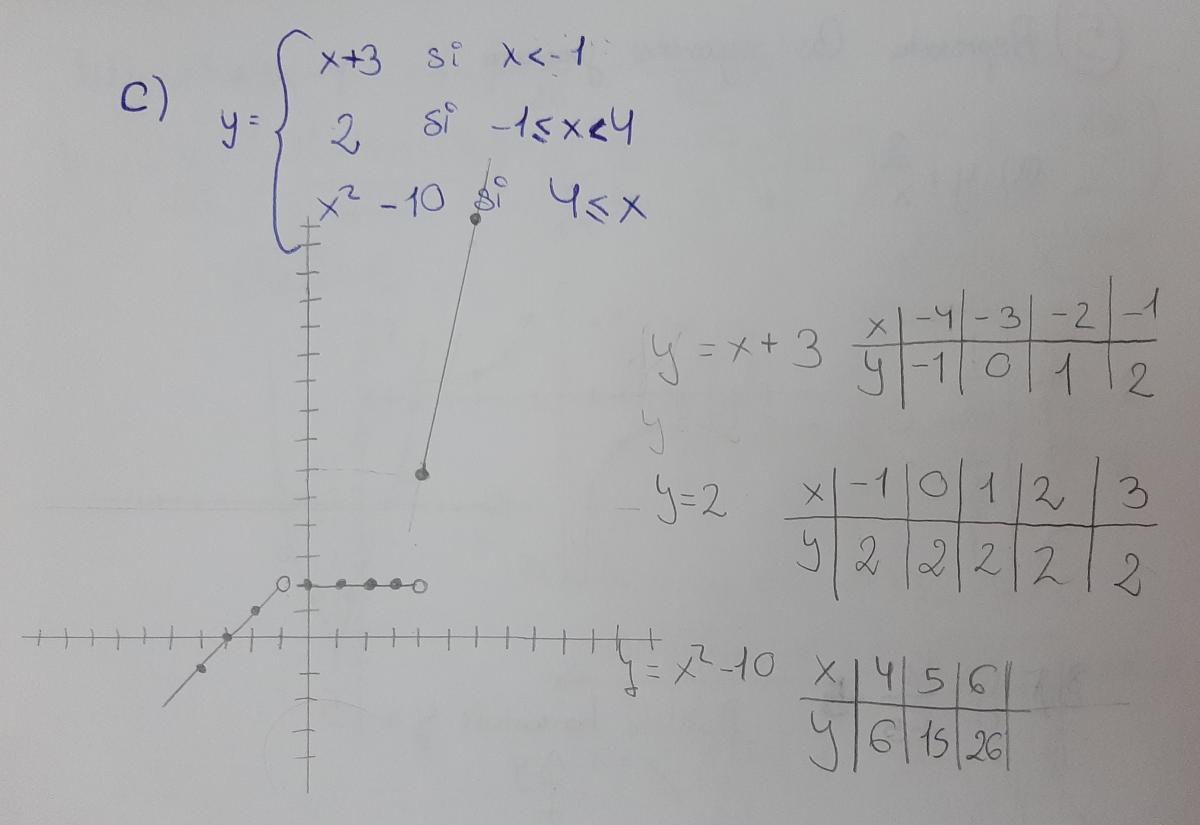 c) y= { x+3 si x<-1
2 si -1≤x<4
x² -10 si 4≤x
y = x+3 x | -4 | -3 | -2 | -1
y | -1 | 0 | 1 | 2
y
y=2 x | -1 | 0 | 1 | 2 | 3
y | 2 | 2 | 2 | 2 | 2
y= x²-10 x | 4 | 5 | 6 |
y | 6 | 15 | 26 |